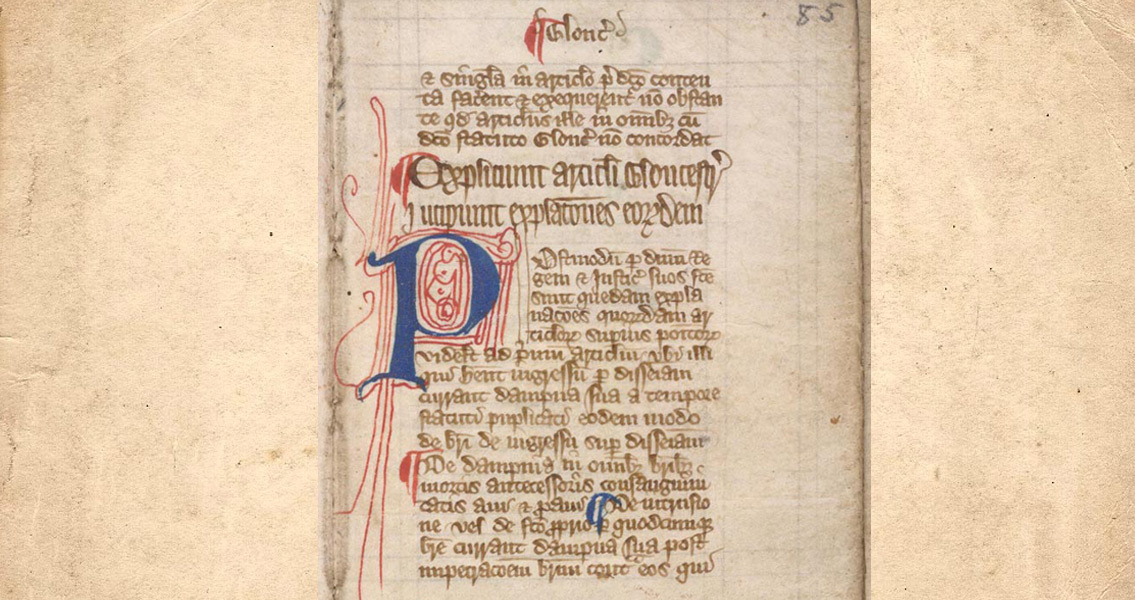 85
Glouc̄
& singl̄a in articl̄o p̄dc̄o conten
ta facent & exequerent᷑ nō obstan
te qd̄ articlus ille in om̄ibꝫ cū
dc̄o statuto Glouc̄ nō concordat
Expliciunt articl̄i Gloucestr̄
Incipiunt explac̄ōnes eorꝝdem
Postmodū ꝑ dnm̄ Re
gem & Justic̄ suos fc̄e
sunt quedam expla
nacōes quorūdam ar
ticlorꝝ supius positorꝝ
videlt᷑ ad p̄imū articlm̄ vbi illi
qui hent ingressū ꝑ disseiam
currant dampna sua a tempore
statuti puplicati eodem modo
de br̄i de ingressu sup disseiam
De dampnis in om̄ibꝫ br̄ibꝫ
mortis antecessoris consanguini
tatis aui & ꝓaui De intrusio
ne vel de fc̄o ꝓprio ꝑ quodcumqꝫ
br̄e currant dampna sua post
impetracōem br̄ium cont᷑ eos qui